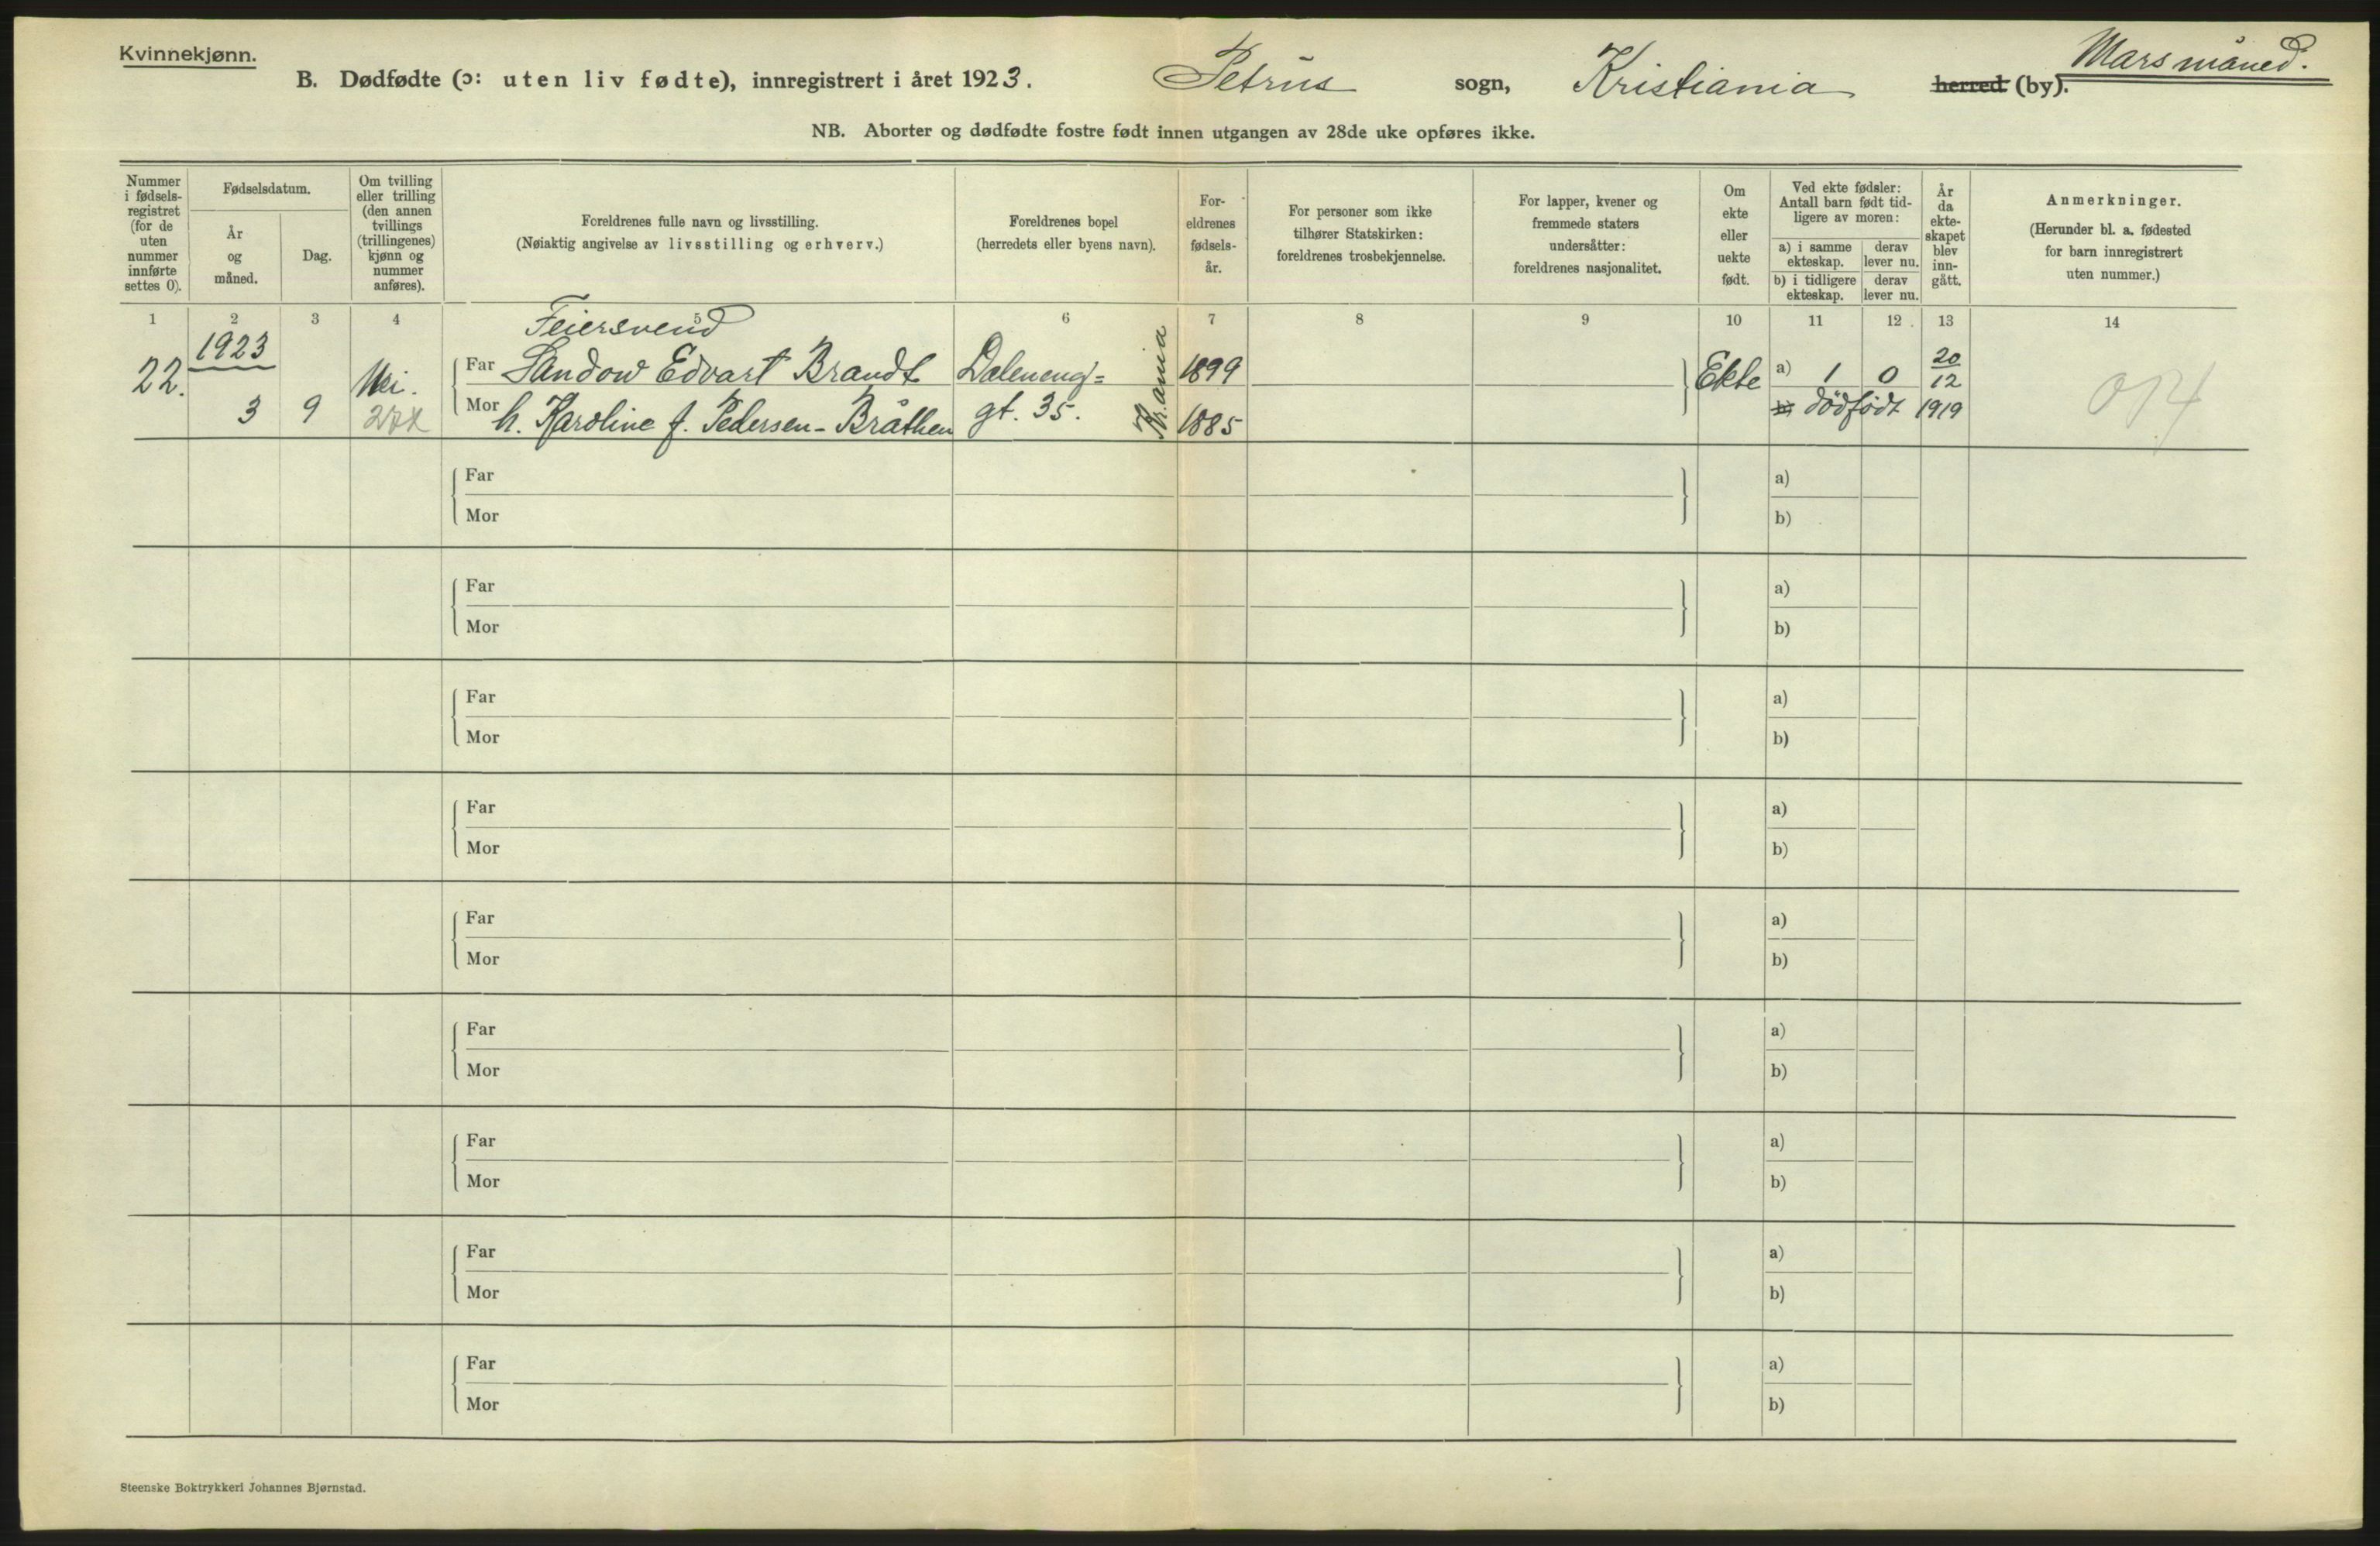 Kvinnekjønn.
Mars måned.
B. Dødfødte (ɔ: uten liv fødte), innregistrert i året 1923. Petrus sogn, Kristiania herred (by).
NB. Aborter og dødfødte fostre født innen utgangen av 28de uke opføres ikke.
Nummer
i fødsels-
registret
(for de
uten
nummer
innførte
settes 0).
Fødselsdatum.
År
og
måned.
Dag.
Om tvilling
eller trilling
(den annen
tvillings
(trillingenes)
kjønn og
nummer
anføres).
Foreldrenes fulle navn og livsstilling.
(Nøiaktig angivelse av livsstilling og erhverv.)
Foreldrenes bopel
(herredets eller byens navn).
For-
eldrenes
fødsels-
år.
For personer som ikke
tilhører Statskirken:
foreldrenes trosbekjennelse.
For lapper, kvener og
fremmede staters
undersåtter:
foreldrenes nasjonalitet.
Om
ekte
eller
uekte
født.
Ved ekte fødsler:
Antall barn født tid-
ligere av moren:
a) i samme
ekteskap.
derav
lever nu.
b) i tidligere
ekteskap.
derav
lever nu.
År
da
ekte-
skapet
blev
inn-
gått.
Anmerkninger.
(Herunder bl. a. fødested
for barn innregistrert
uten nummer.)
1 2 3 4 5 6 7 8 9 10 11 12 13 14
1923
Feiersvend
22. Nei. Far Sandow Edvart Brandt Daleneng= Kr.ania 1899 Ekte a) 1 0 20/12
3 9 Mor h. Karoline f. Pedersen-Bråthen gt. 35. 1885 b) dödfödt 1919
Far a)
Mor b)
Far a)
Mor b)
Far a)
Mor b)
Far a)
Mor b)
Far a)
Mor b)
Far a)
Mor b)
Far a)
Mor b)
Far a)
Mor b)
Far a)
Mor b)
Steenske Boktrykkeri Johannes Bjørnstad.